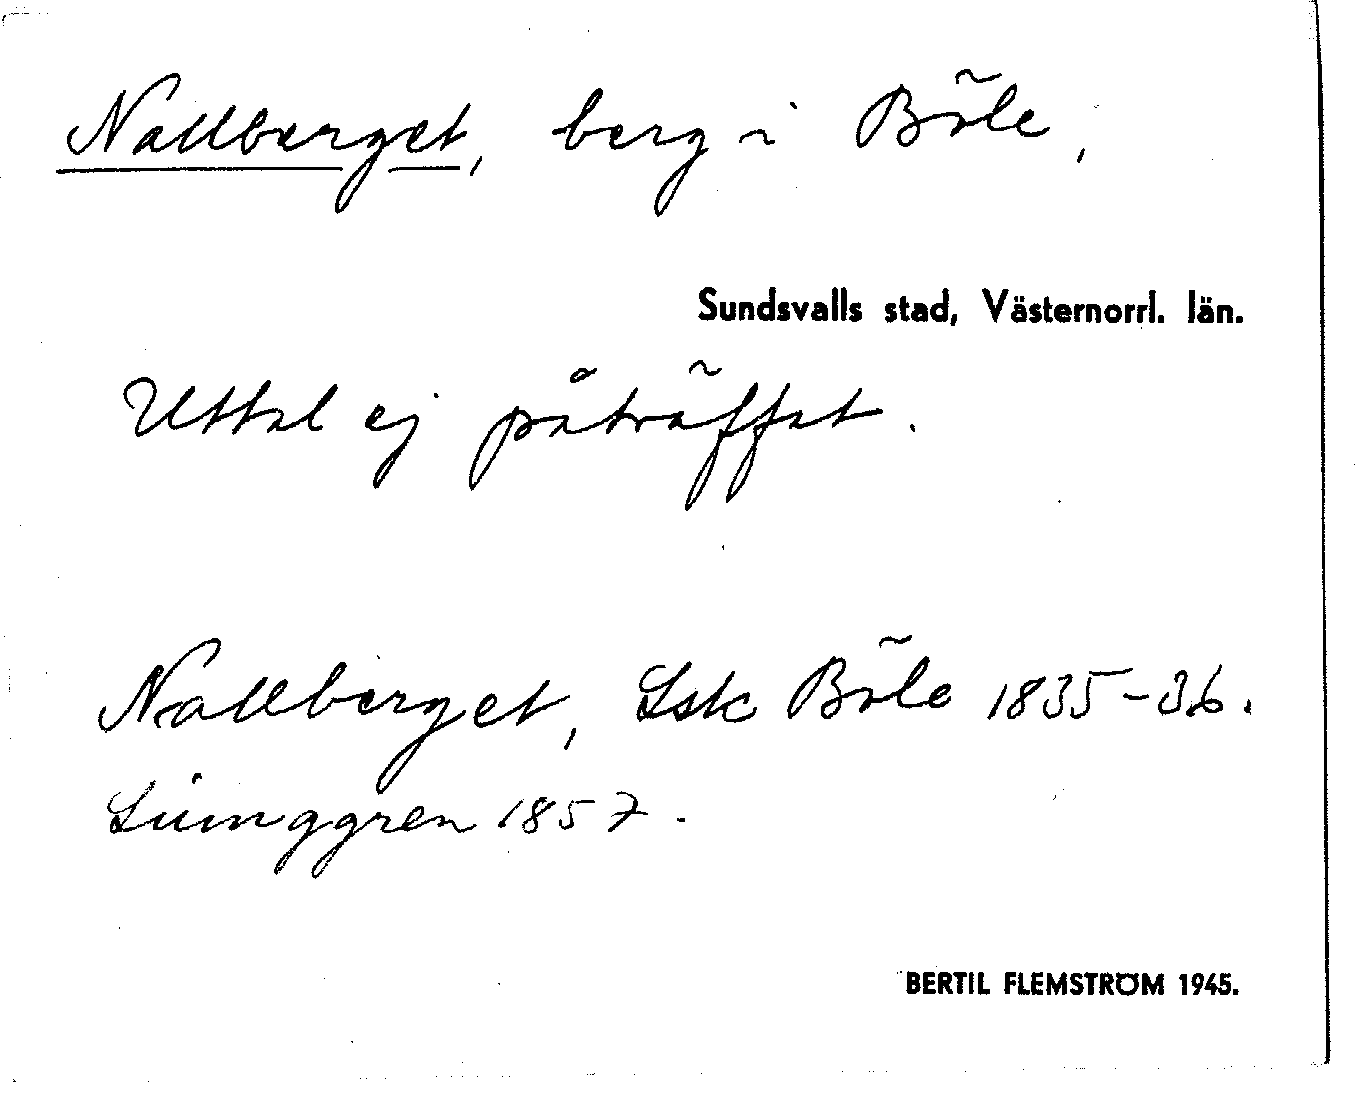 Nallberget, berg i Böle,
Sundsvalls stad, Västernorrl. län.
Uttal ej påträffat.
Nallberget, Lsk Böle 1835-36.
Ljunggren 1857.
BERTIL FLEMSTRÖM 1945.